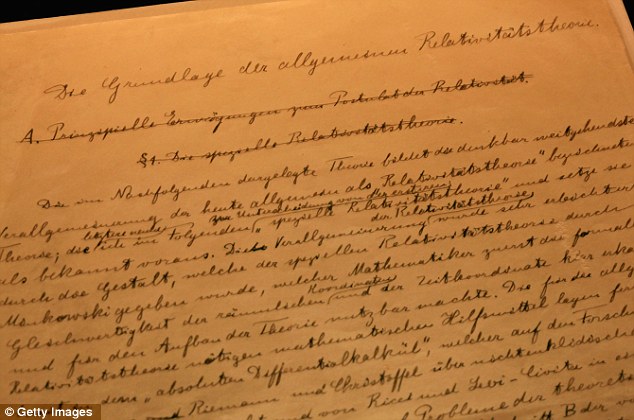 Die Grundlage der allgemeinen Relativitätstheorie.
A. Prinzipielle Erwägungen zum Postulat der Relativität.
§1. Die spezielle Relativitätstheorie.
Die im Nachfolgenden dargelegte Theorie bildet die denkbar weitgehendste
Verallgemeinerung der heute allgemein als "Relativitätstheorie" bezeichneten
letztere zur Unterscheidung von der ersteren
Theorie; die ich im Folgenden "spezielle Relativitätstheorie" und setze sie
der Relativitätstheorie
als bekannt voraus. Die Verallgemeinerung wurde sehr erleichtert
durch die Gestalt, welche der speziellen Relativitätstheorie durch
Minkowski gegeben wurde, welcher Mathematiker zuerst die formale
Koordinaten
Gleichwertigkeit der räumlichen und der Zeitkoordinate klar
und für den Aufbau der Theorie nutzbar machte. Die für die
Relativitätstheorie nötigen mathematischen Hilfsmittel lagen
dem "absoluten Differentialkalkül", welcher auf den
Riemann und Christoffel über
und von Ricci und Levi-Civita in
Probleme der
B der
© Getty Images